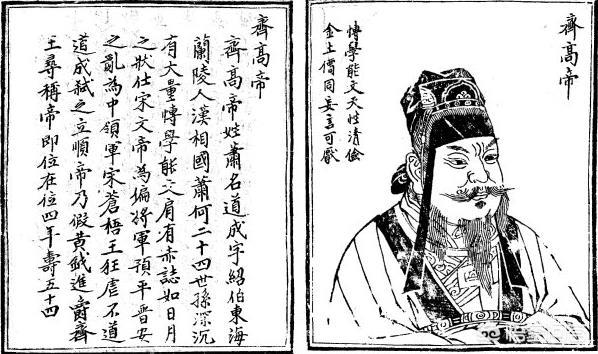 齊高帝
愽學能文天性清儉
金土價同妄言可厭
齊高帝
齊高帝姓蕭名道成字紹伯東海
蘭陵人漢相國蕭何二十四世孫深沉
有大量愽學能文肩有赤誌如日月
之狀仕宋文帝為偏將軍預平晉安
之亂為中領軍宋蒼梧王狂虐不道
道成弒之立順帝乃假黃鉞進爵齊
王尋稱帝即位在位四年壽五十四